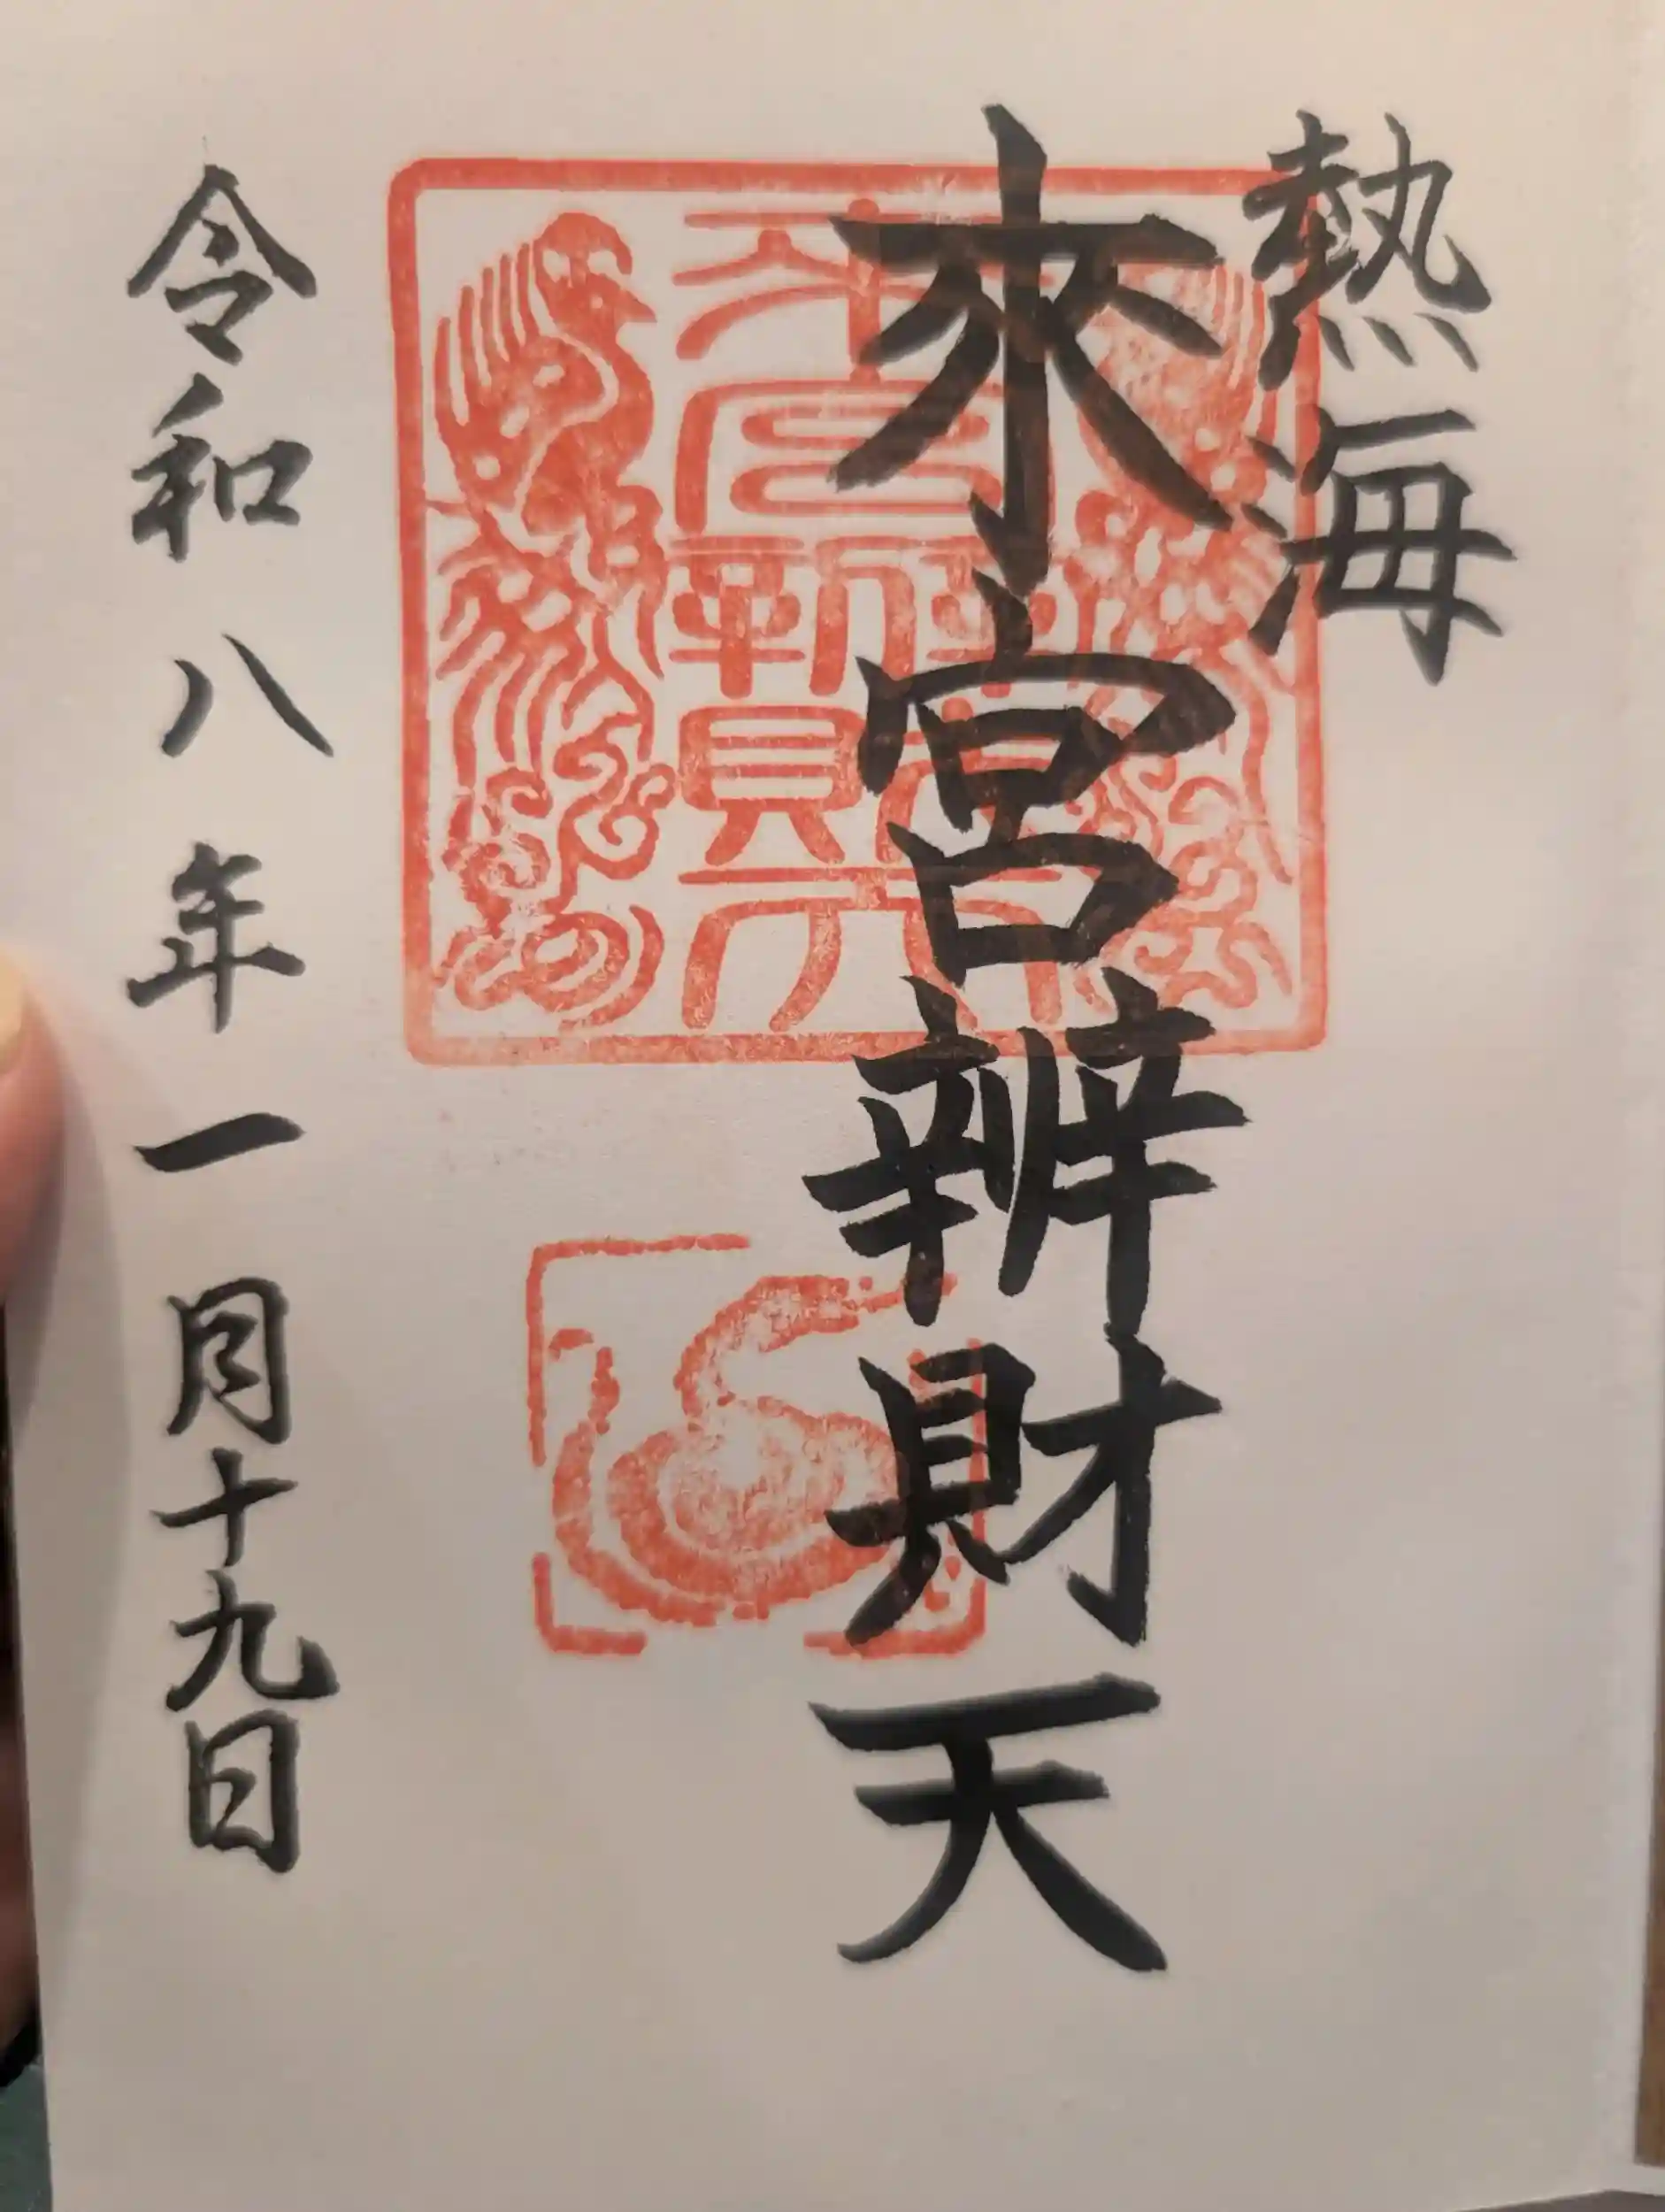 熱海
來宮辨財天
令和八年一月十九日